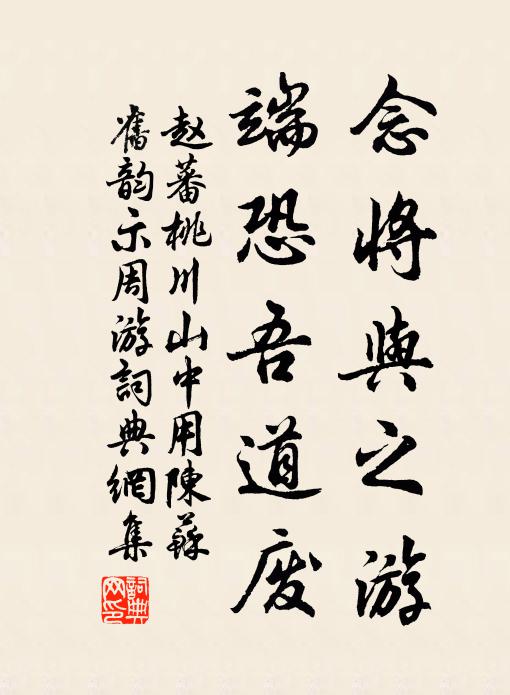 念将與之游
端恐吾道废
赵蕃桃川山中用陳蘇
舊韵示周游詞典網集
詞典网印